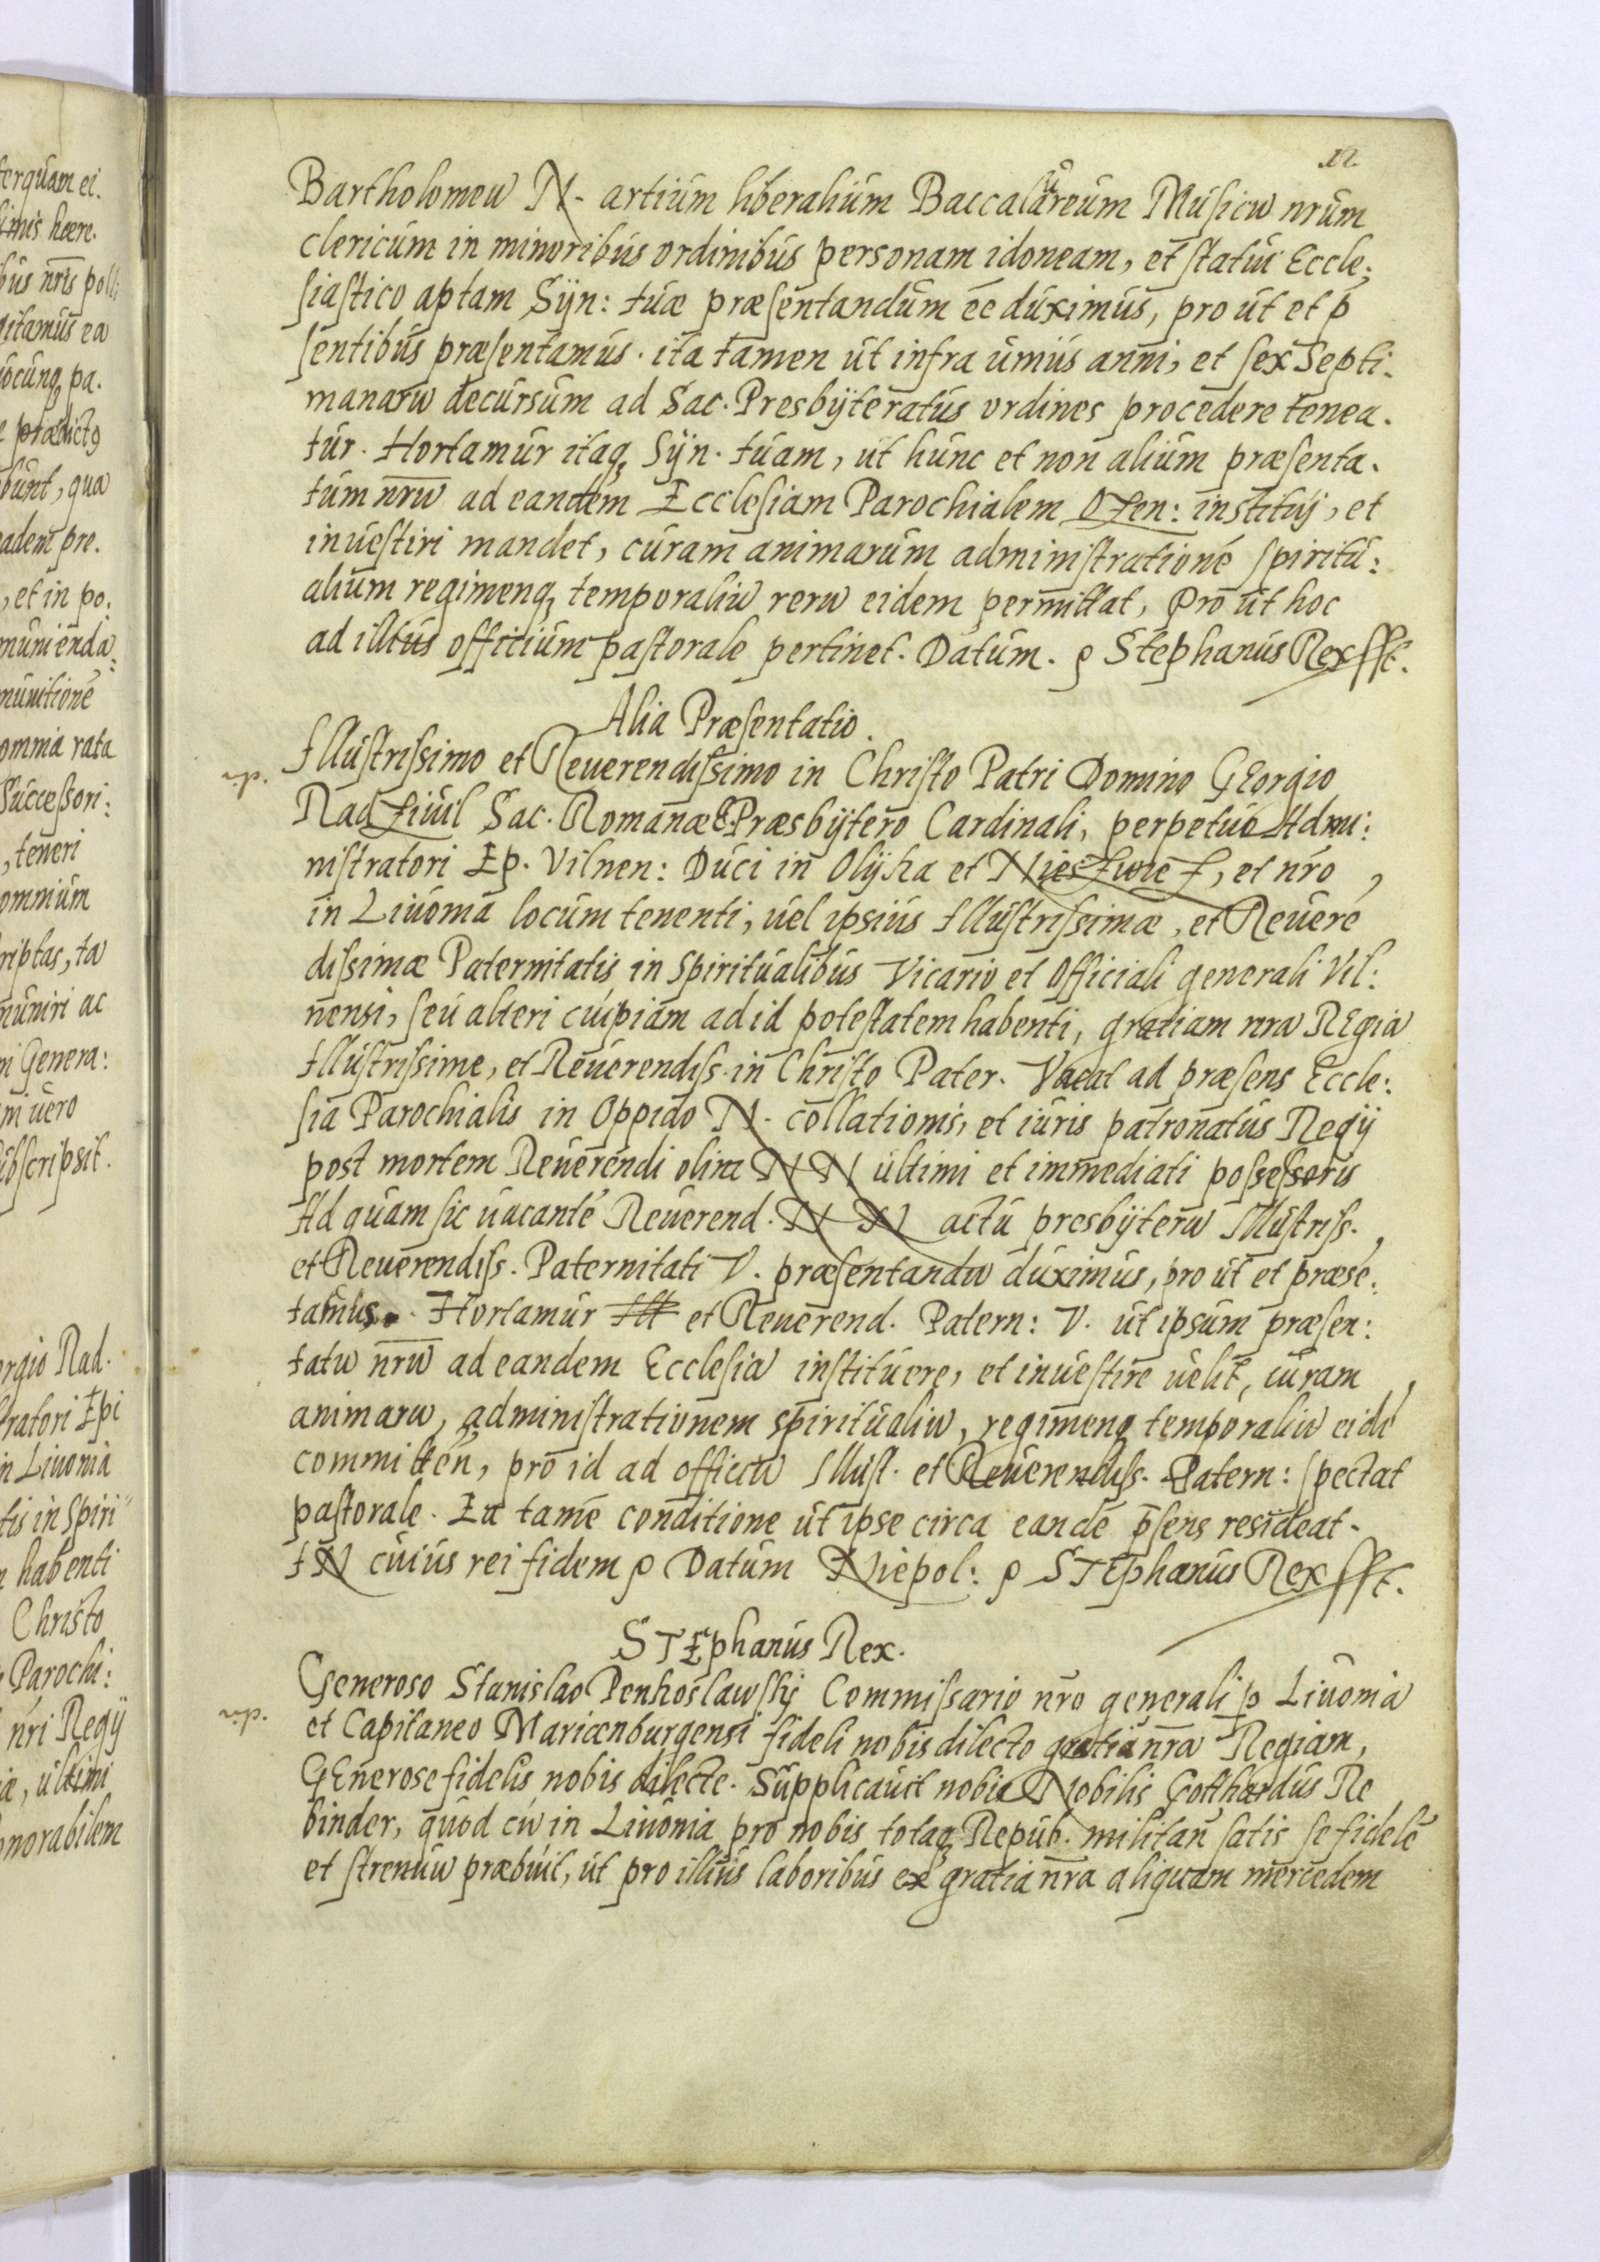 12.
Bartholomeu N. artium liberalium Baccalaureum Musicu nrum
clericum in minoribus ordinibus personam idoneam, et statui Eccle:
siastico aptam Syn: tuæ præsentandum ee duximus, pro ut et p
sentibus præsentamus. ita tamen ut infra unius anni, et sex Septi.
manaru decursum ad Sac. Presbyteratus ordines procedere tenea.
tur. Hortamur itaq, Syn. tuam, ut hunc et non alium præsenta.
tum nru ad eandem Ecclesiam Parochialem Ozen: institui, et
inuestiri mandet, curam animarum administrationé spiritu:
alium regimenq, temporaliu reru eidem permittat, Pro ut hoc
ad illius officium pastorale pertinet. Datum. Stephanus Rex sst.
Alia Præsentatio.
Illustrissimo et Reuerendissimo in Christo Patri Domino GEorgio
Radziuil Sac. Romanæ E. Præsbytero Cardinali, perpetuo Admi:
nistratori Ep. Vilnen: Duci in Olyka et Nieszwiez, et nro
in Liuonia locum tenenti, uel ipsius Illustrissimæ, et Reuere
dissimæ Paternitatis in Spiritualibus Vicario et Officiali generali Vil:
nensi, seu alteri cuipiam ad id potestatem habenti, gratiam nra REgia
Illustrissime, et Reuerendiss. in Christo Pater. Vacat ad præsens Eccle:
sia Parochialis in Oppido N. collationis, et iuris patronatus Regij
post mortem Reuerendi olim N N ultimi et immediati possessoris
Ad quam sic uacanté Reuerend. N N actu presbyteru Illustriss.
et Reuerendiss. Paternitati V. præsentandu duximus, pro ut et præse:
tamus. Hortamur Ill et Reuerend. Patern: V. ut ipsum præsen:
tatu nru ad eandem Ecclesia instituere, et inuestire uelit, curam
animaru, administrationem spiritualiu, regimenq temporaliu eidé
committén, pro id ad officiu Illust. et Reuerendiss. Patern: spectat
pastorale. Ea tamé conditione ut ipse circa eandé psens resideat.
IN cuius rei fidem Datum Niepol: STEphanus Rex sst.
STEphanus Rex.
GEneroso Stanislao Penkoslawsky Commissario nro generali p Liuonia
et Capitaneo Mariænburgensi fideli nobis dilecto gratia nra Regiam,
GEnerose fidelis nobis dilecte. Supplicauit nobis Nobilis Gotthardus Re
binder, quod cu in Liuonia pro nobis totaq Repub. militan satis se fidelé
et strenuu præbuit, ut pro illius laboribus ex gratia nra aliquam mercedem